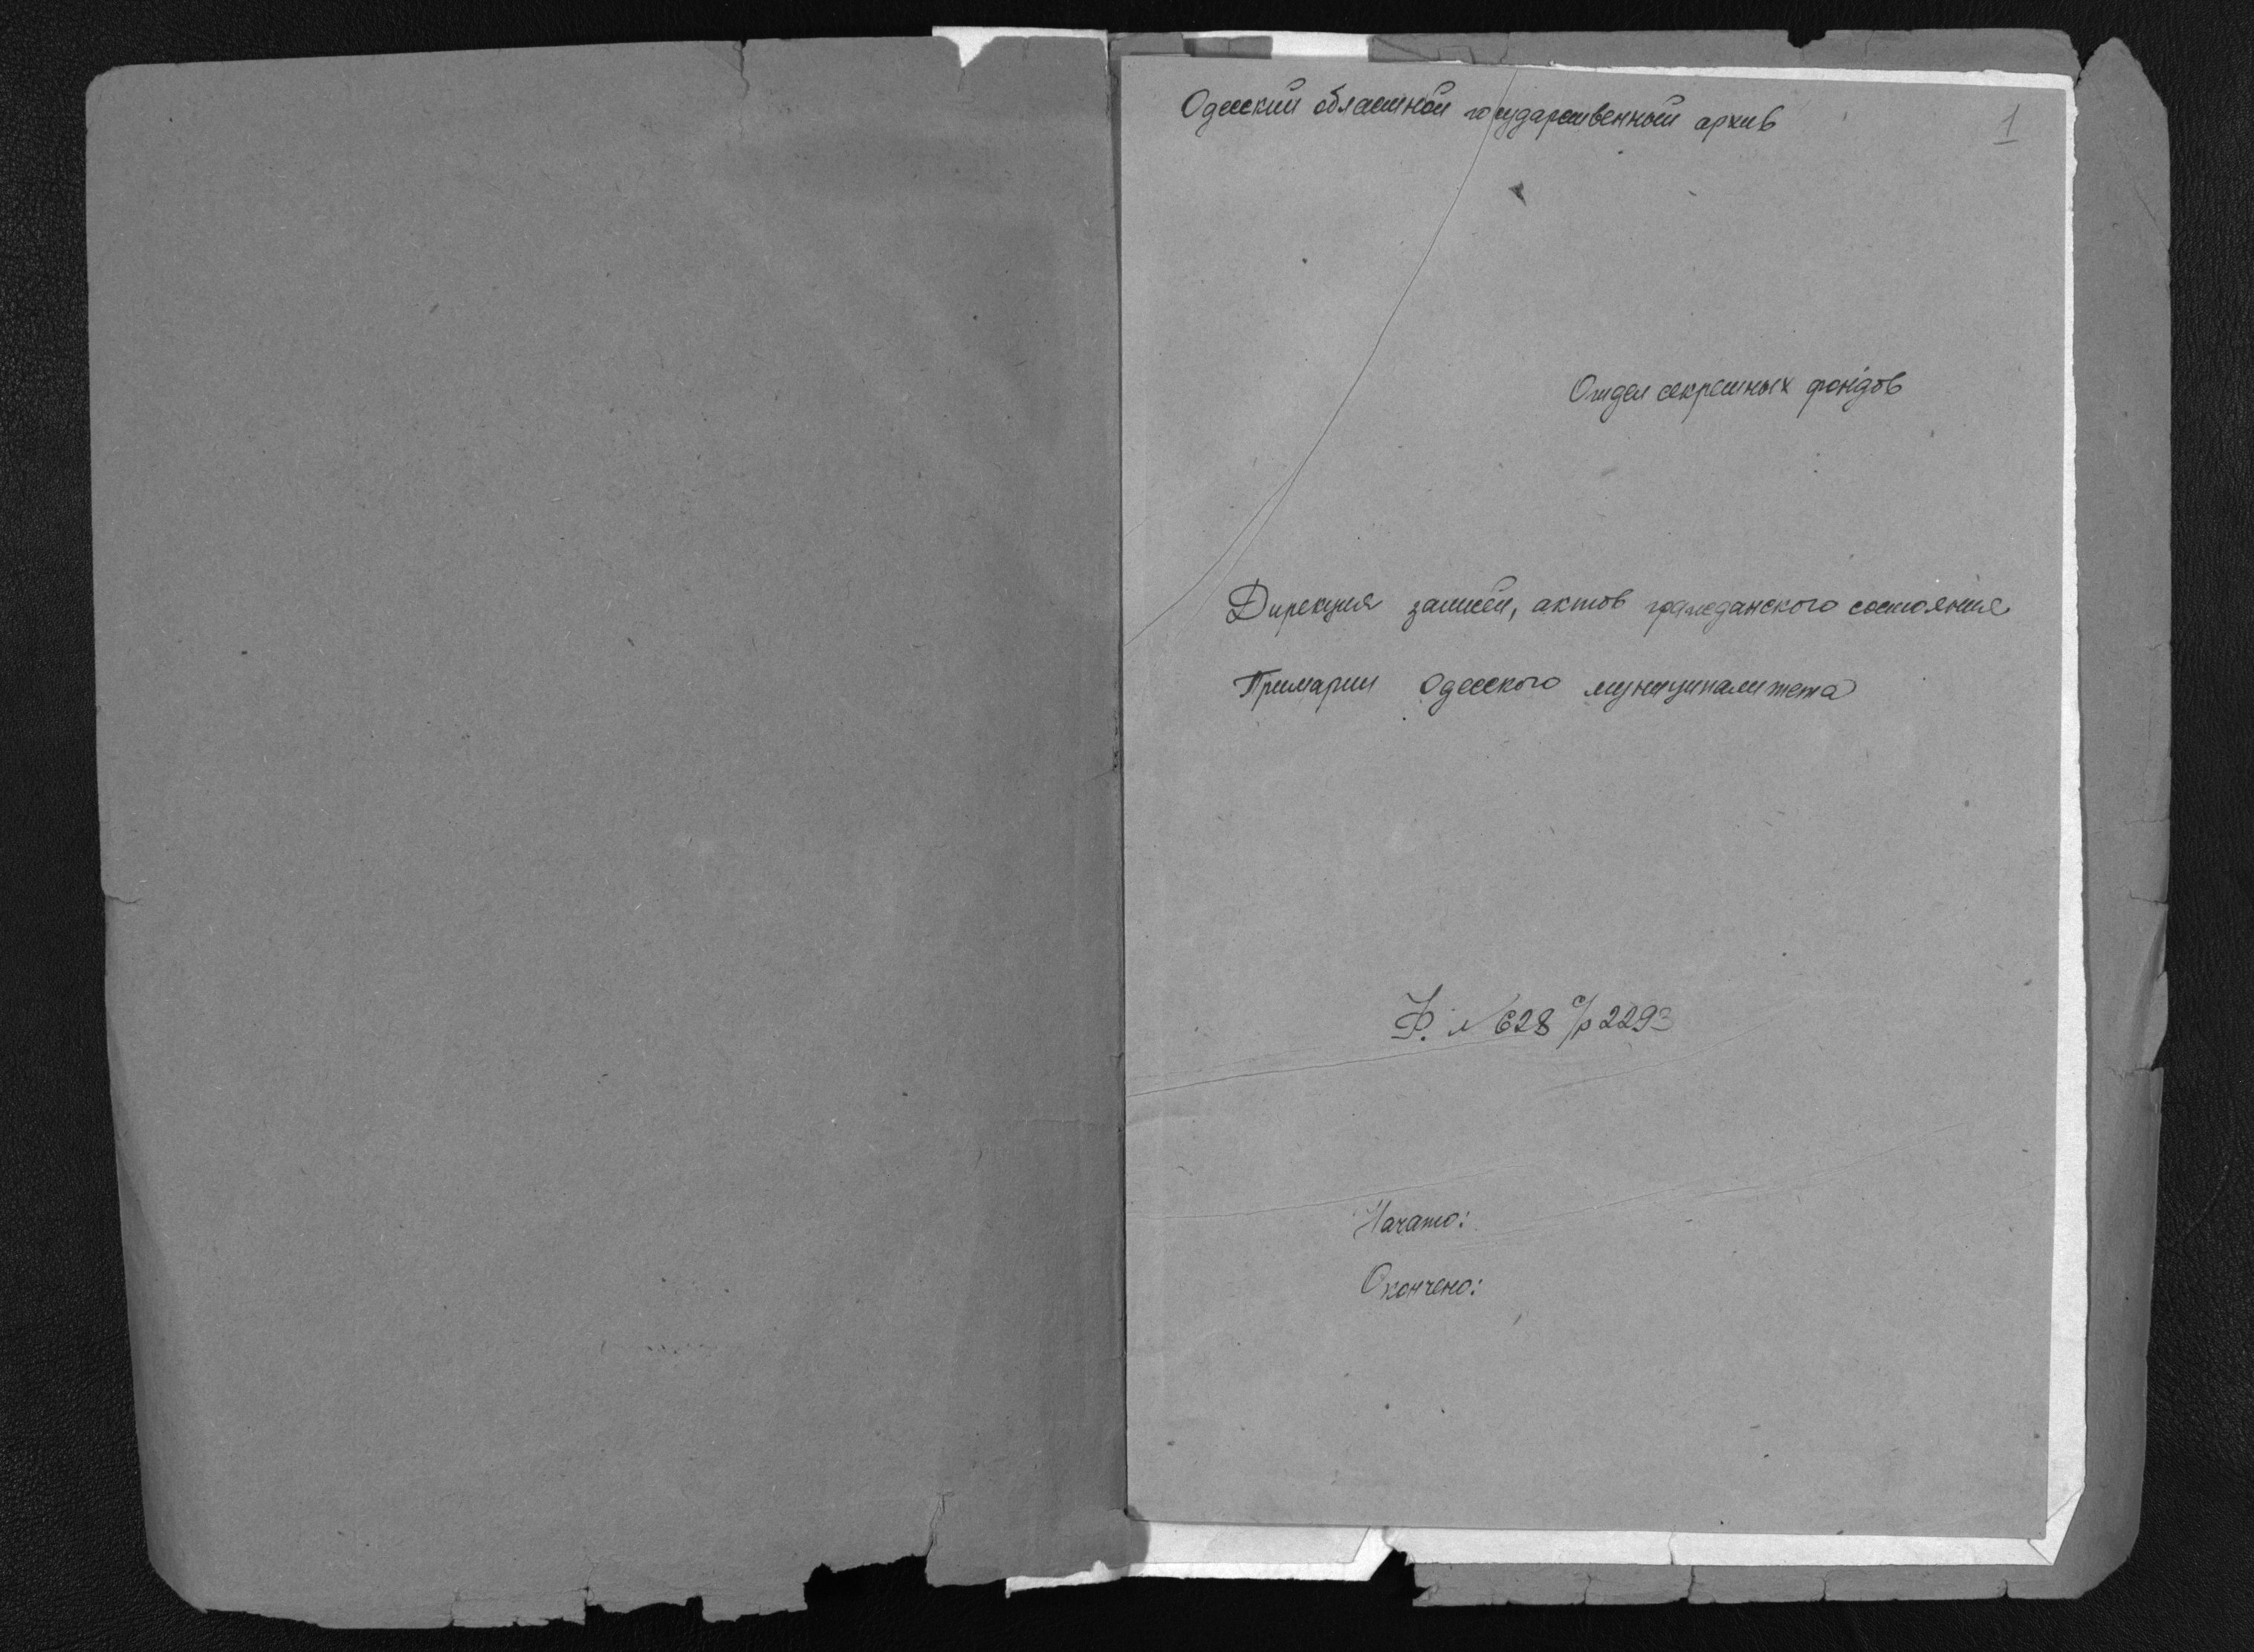 Одесский областной государственный архив
1
Отдел секретных фондов
Дирекция записей, актов гражданского состояния
Примарии Одесского муниципалитета
Ф. № 628 с/р 2293
Начато:
Окончено: